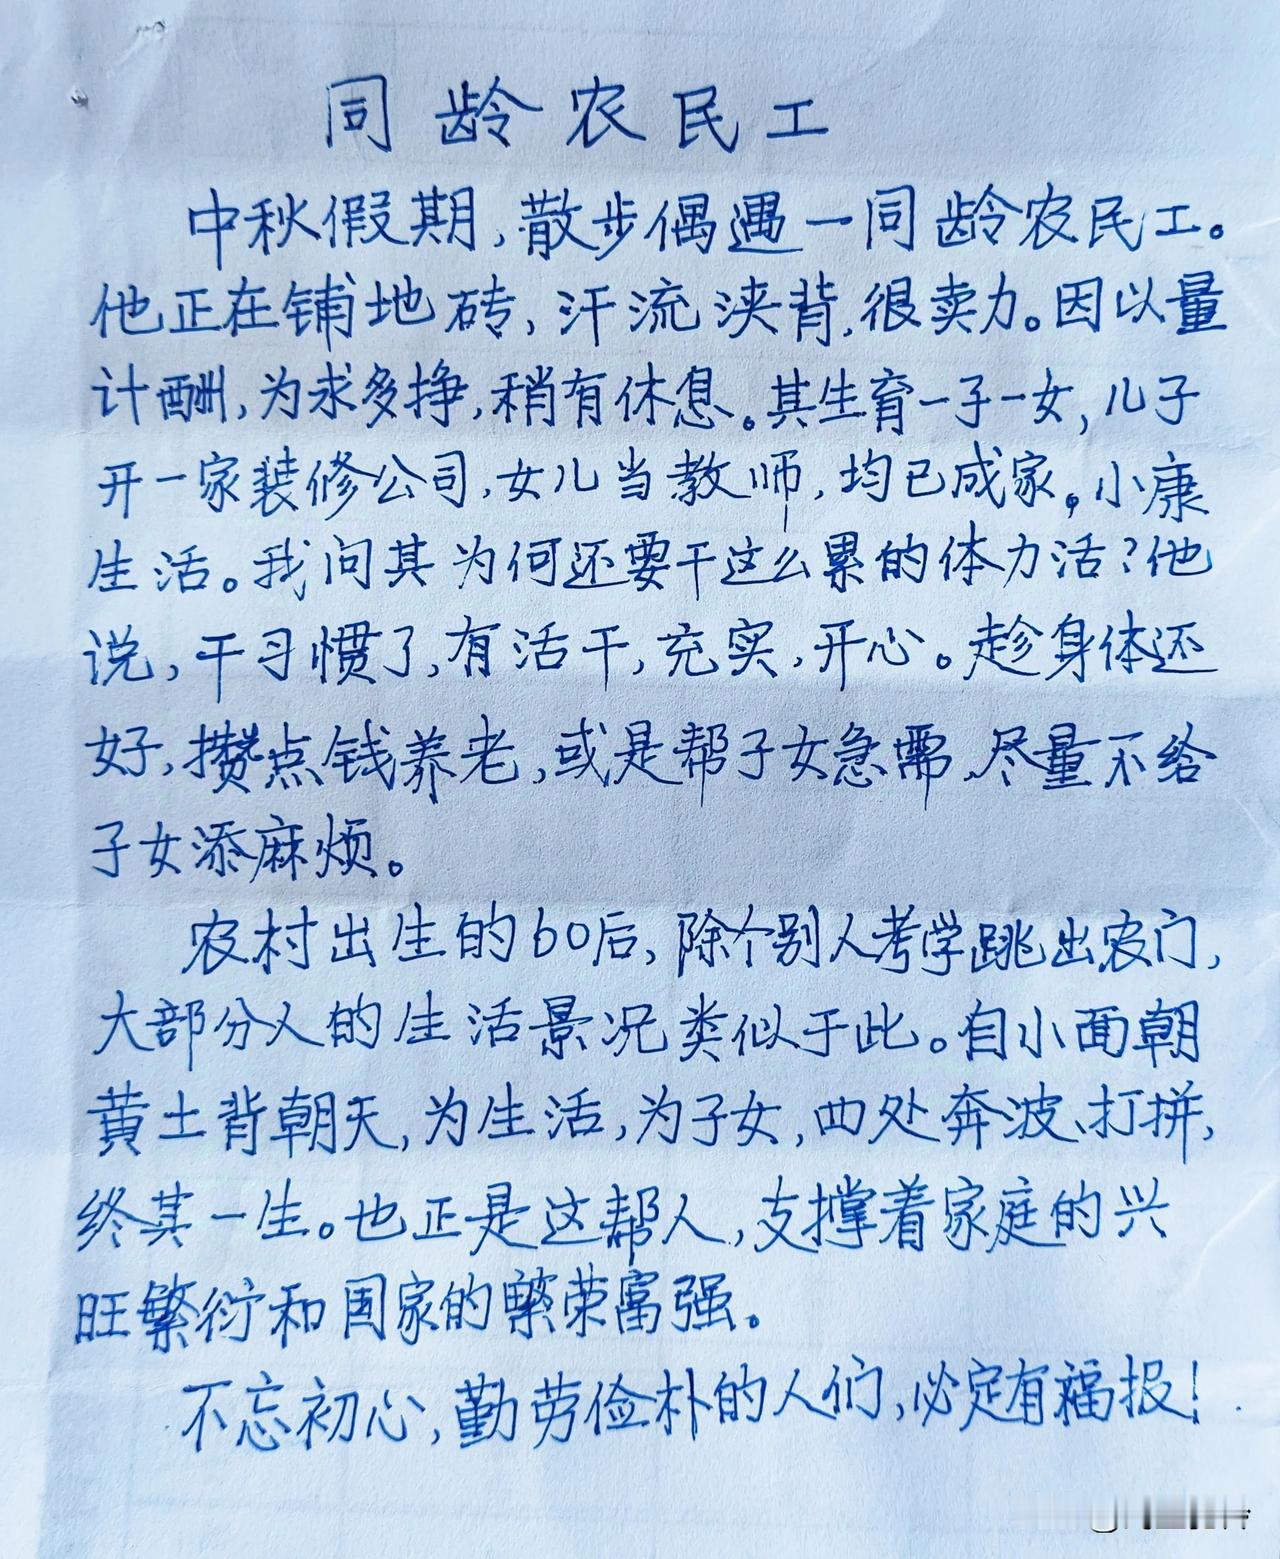 同龄农民工
中秋假期,散步偶遇一同龄农民工。
他正在铺地砖,汗流浃背,很卖力。因以量
计酬,为求多挣,稍有休息。其生育一子一女,儿子
开一家装修公司,女儿当教师,均已成家。小康
生活。我问其为何还要干这么累的体力活?他
说,干习惯了,有活干,充实,开心。趁身体还
好,攒点钱养老,或是帮子女急需,尽量不给
子女添麻烦。
农村出生的60后,除个别人考学跳出农门,
大部分人的生活景况类似于此。自小面朝
黄土背朝天,为生活,为子女,四处奔波、打拼,
终其一生。也正是这帮人,支撑着家庭的兴
旺繁衍和国家的繁荣富强。
不忘初心,勤劳俭朴的人们,必定有福报!